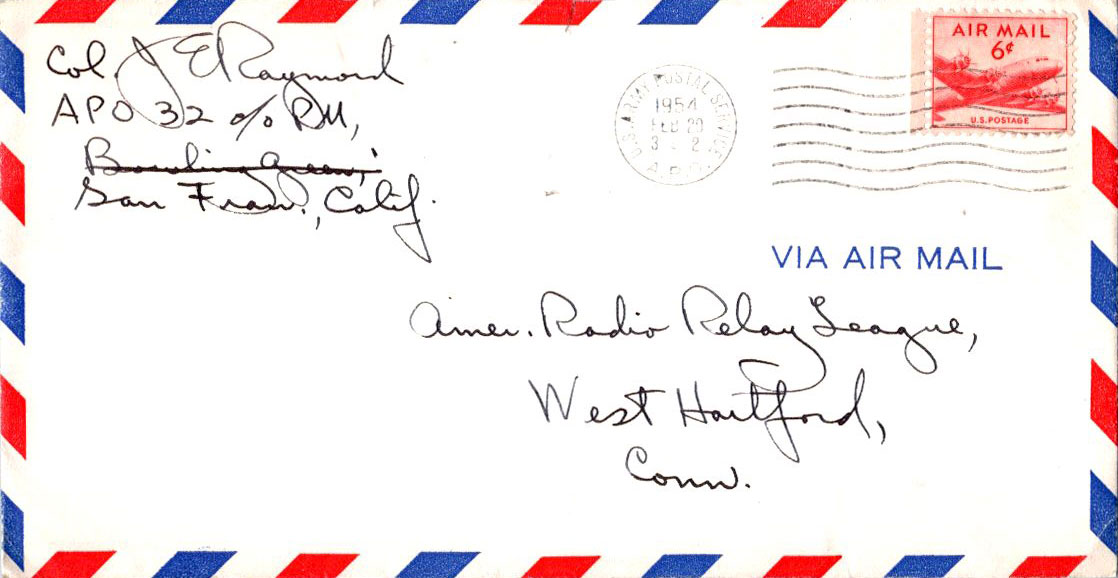 Col. J E Raymond
APO 32 c/o PM,
Bowling Green,
San Fran., Calif.
U.S. ARMY POSTAL SERVICE
1954
FEB
A.P.O.
AIR MAIL
6¢
U.S. POSTAGE
VIA AIR MAIL
Amer. Radio Relay League,
West Hartford,
Conn.